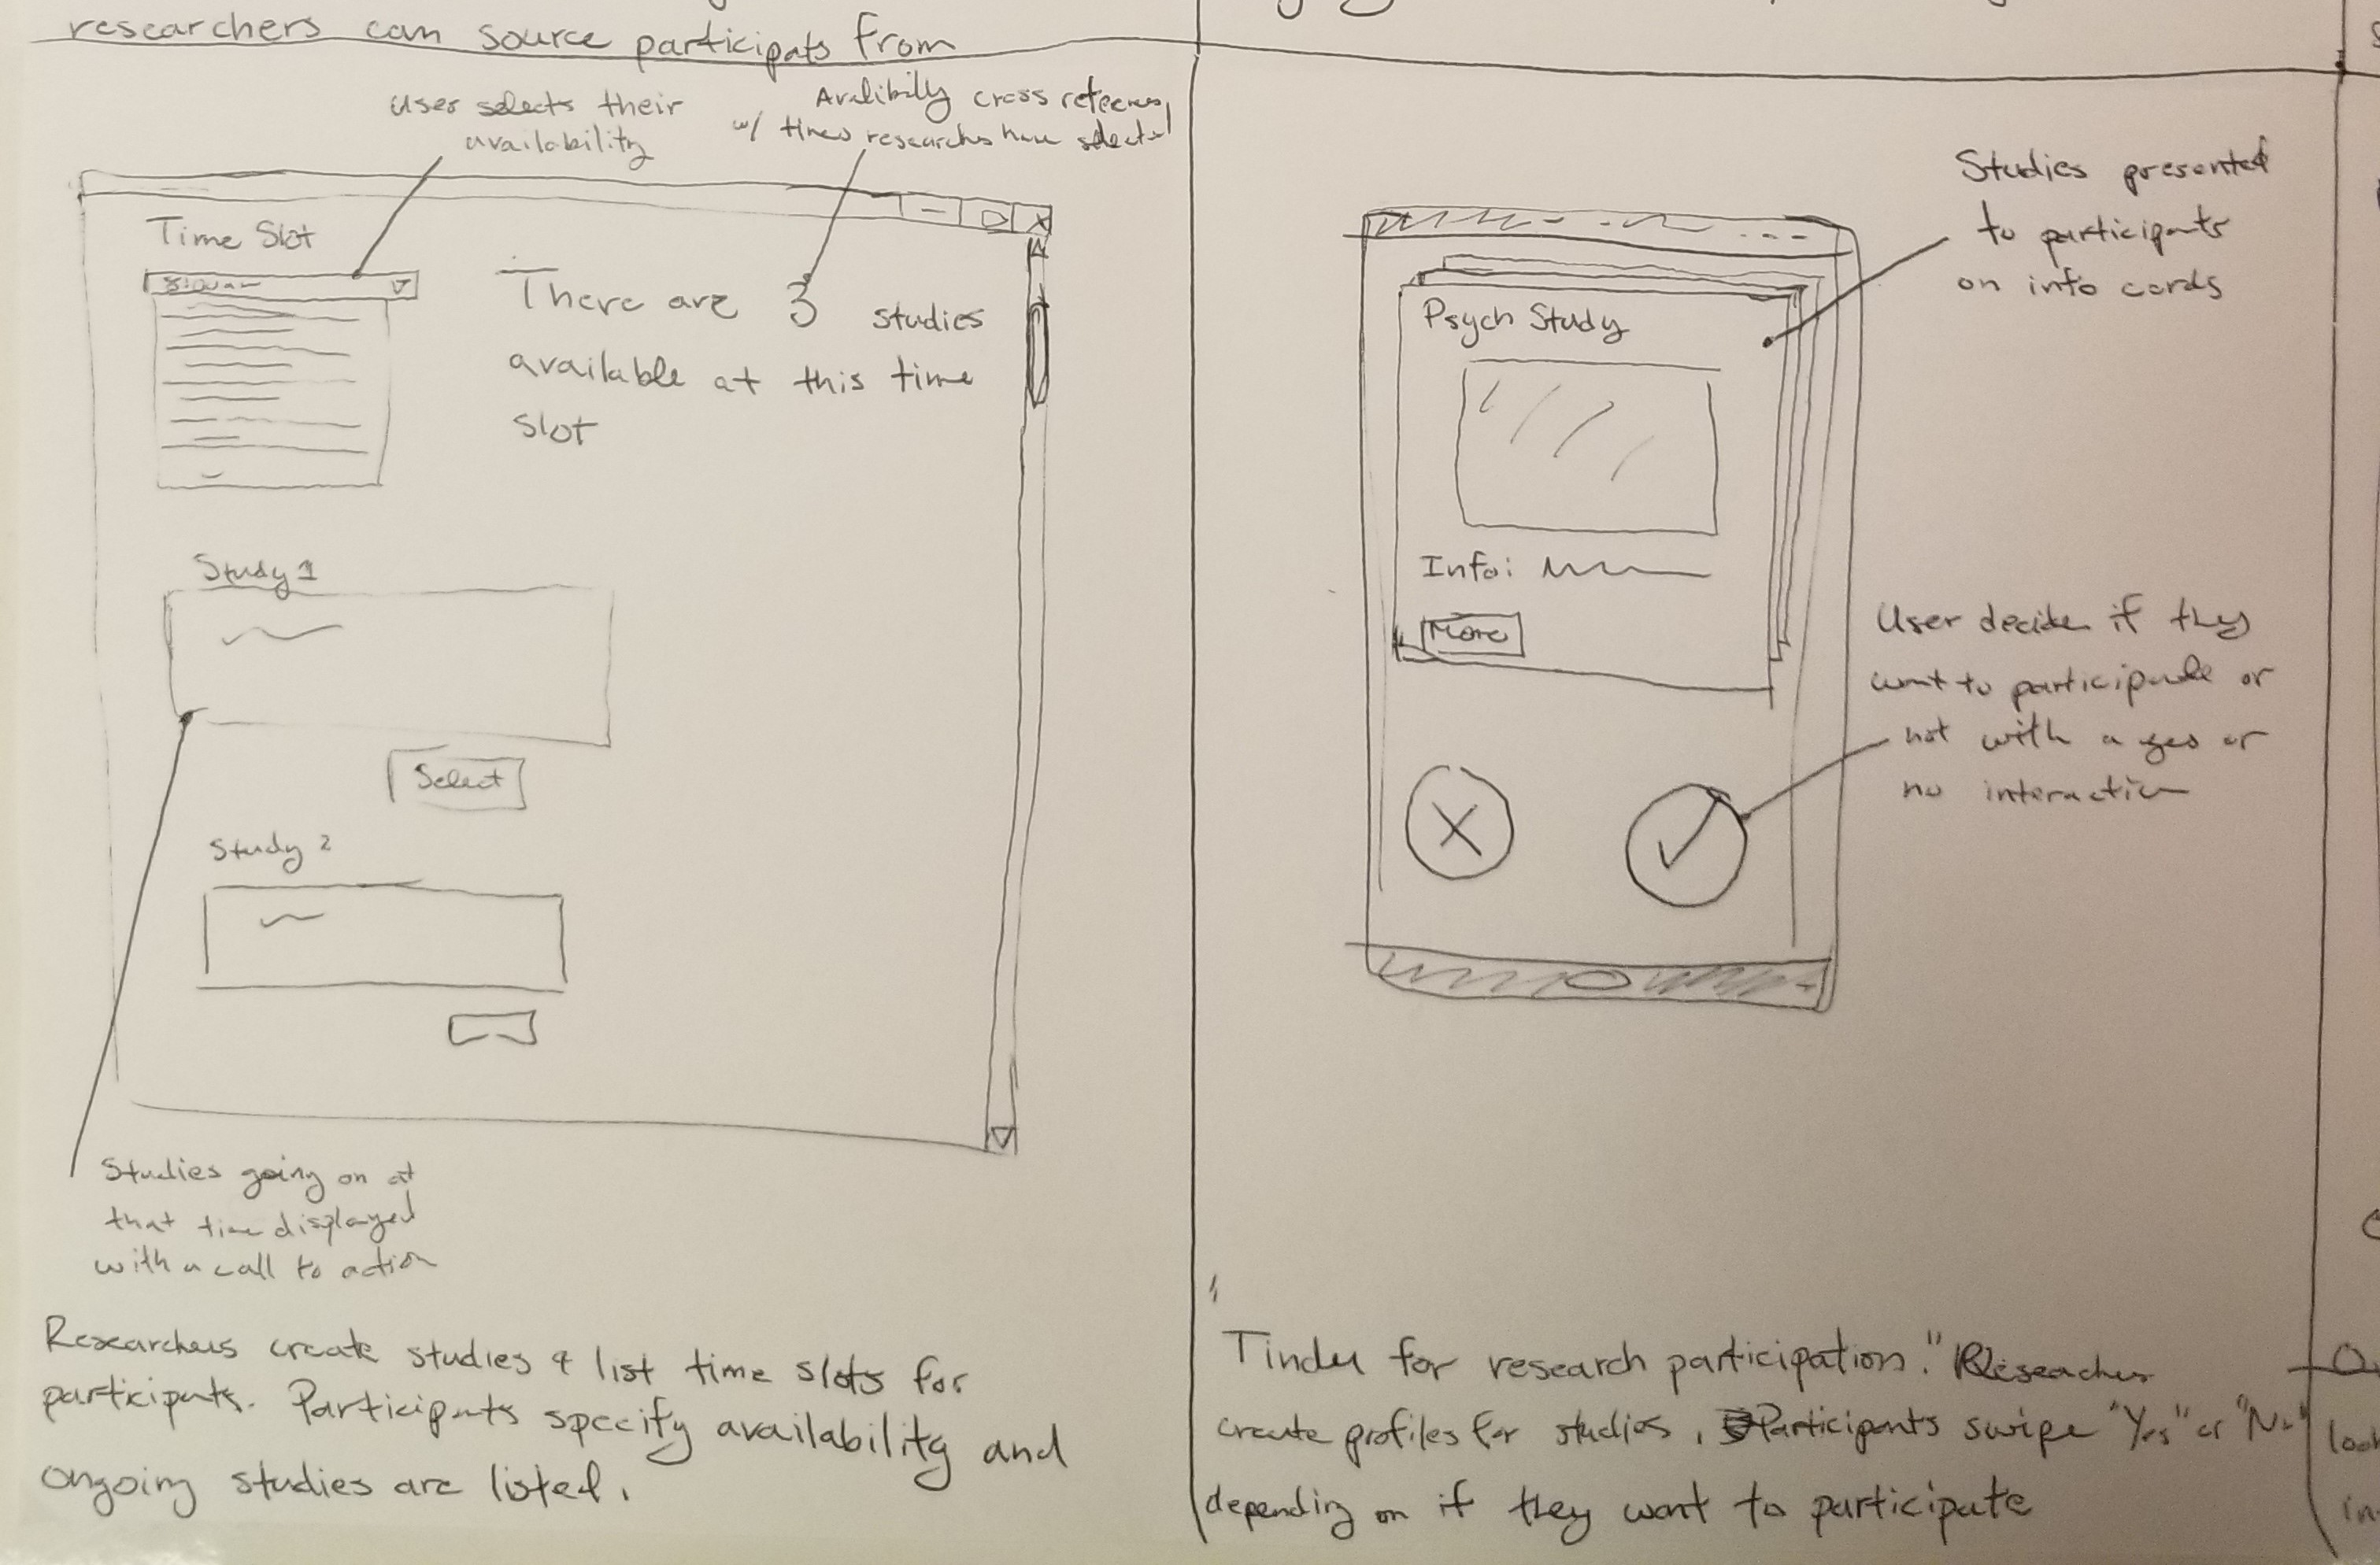 researchers can source participats from
User selects their
availability
cross
w/ times have
Time Slot
There are 3 studies
available at this time
slot
Study 1
Select
Study 2
Studies going on at
that time displayed
with a call to action
Researchers create studies & list time slots for
participants. Participants specify availability and
ongoing studies are listed.
Studies presented
to participants
on info cards
Psych Study
Info:
More
User decide if they
want to participate or
not with a yes or
no interaction
"
Tinder for research participation."
create profiles for studies. Participants swipe "Yes" or "No"
depending on if they want to participate
look
in